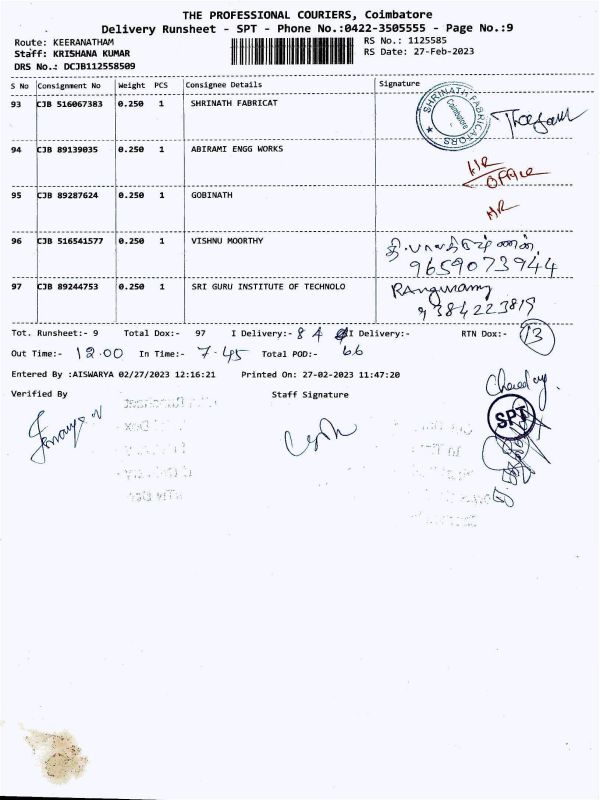 THE PROFESSIONAL COURIERS, Coimbatore
Delivery Runsheet - SPT - Phone No.:0422-3505555 - Page No.:9
Route: KEERANATHAM RS No.: 1125585
Staff: KRISHANA KUMAR RS Date: 27-Feb-2023
DRS No.: DCJB112558509
S No Consignment No Weight PCS Consignee Details Signature
93 CJB 516067383 0.250 1 SHRINATH FABRICAT
SHRINATH FABRICATORS
Coimbatore
94 CJB 89139035 0.250 1 ABIRAMI ENGG WORKS
HR
OFFICE
95 CJB 89287624 0.250 1 GOBINATH
HR
96 CJB 516541577 0.250 1 VISHNU MOORTHY
9659073944
97 CJB 89244753 0.250 1 SRI GURU INSTITUTE OF TECHNOLO
9384223819
Tot. Runsheet:- 9 Total Dox:- 97 I Delivery:- 84 II Delivery:- RTN Dox:- 13
Out Time:- 12.00 In Time:- 7.45 Total POD:- 66
Entered By :AISWARYA 02/27/2023 12:16:21 Printed On: 27-02-2023 11:47:20
Verified By Staff Signature
SPT